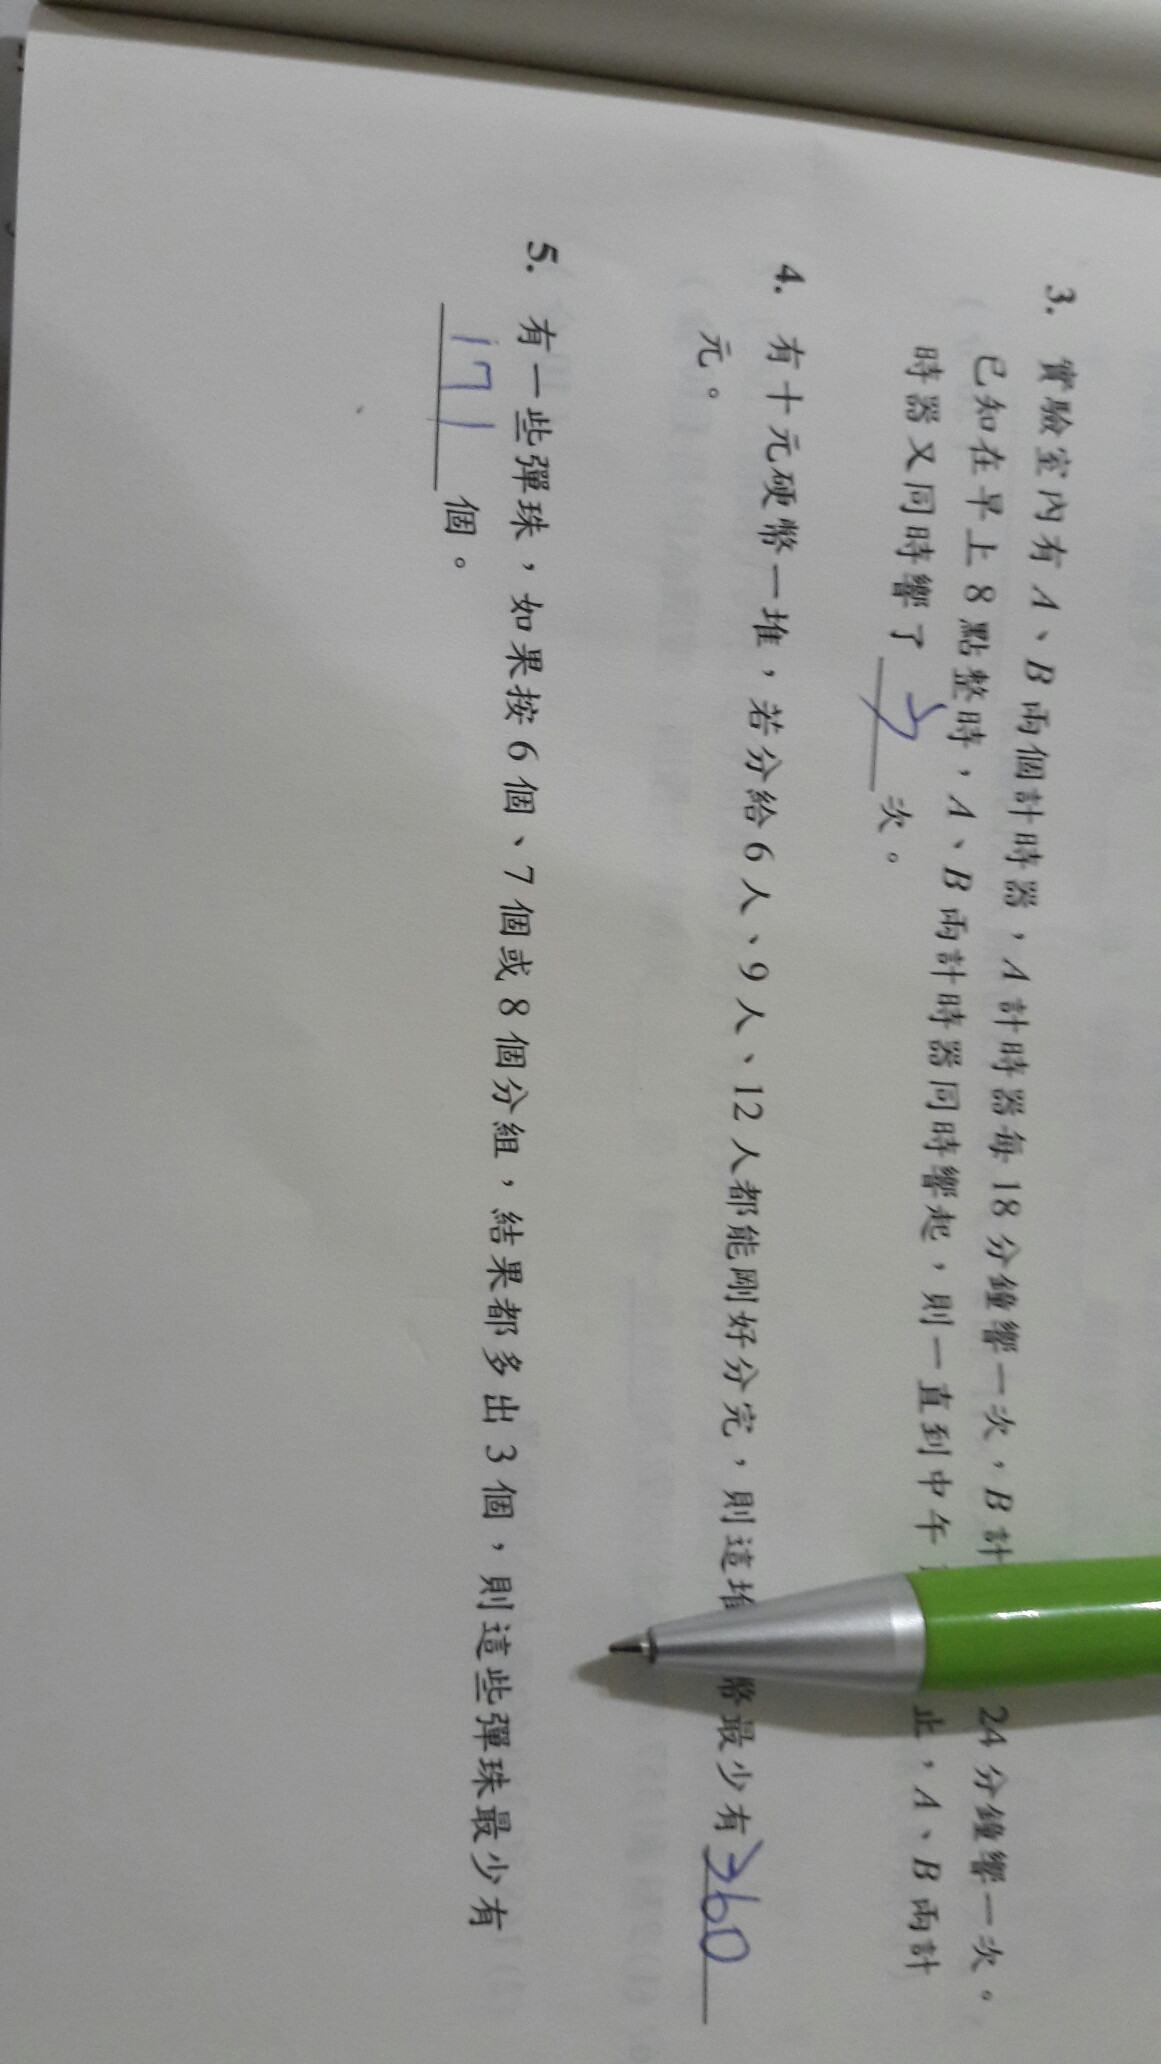 3. 實驗室內有 A、B 兩個計時器，A 計時器每 18 分鐘響一次，B 計 24 分鐘響一次。
已知在早上 8 點整時，A、B 兩計時器同時響起，則一直到中午 止，A、B 兩計
時器又同時響了 3 次。
4. 有十元硬幣一堆，若分給 6 人、9 人、12 人都能剛好分完，則這堆 幣最少有 360
元。
5. 有一些彈珠，如果按 6 個、7 個或 8 個分組，結果都多出 3 個，則這些彈珠最少有
171 個。